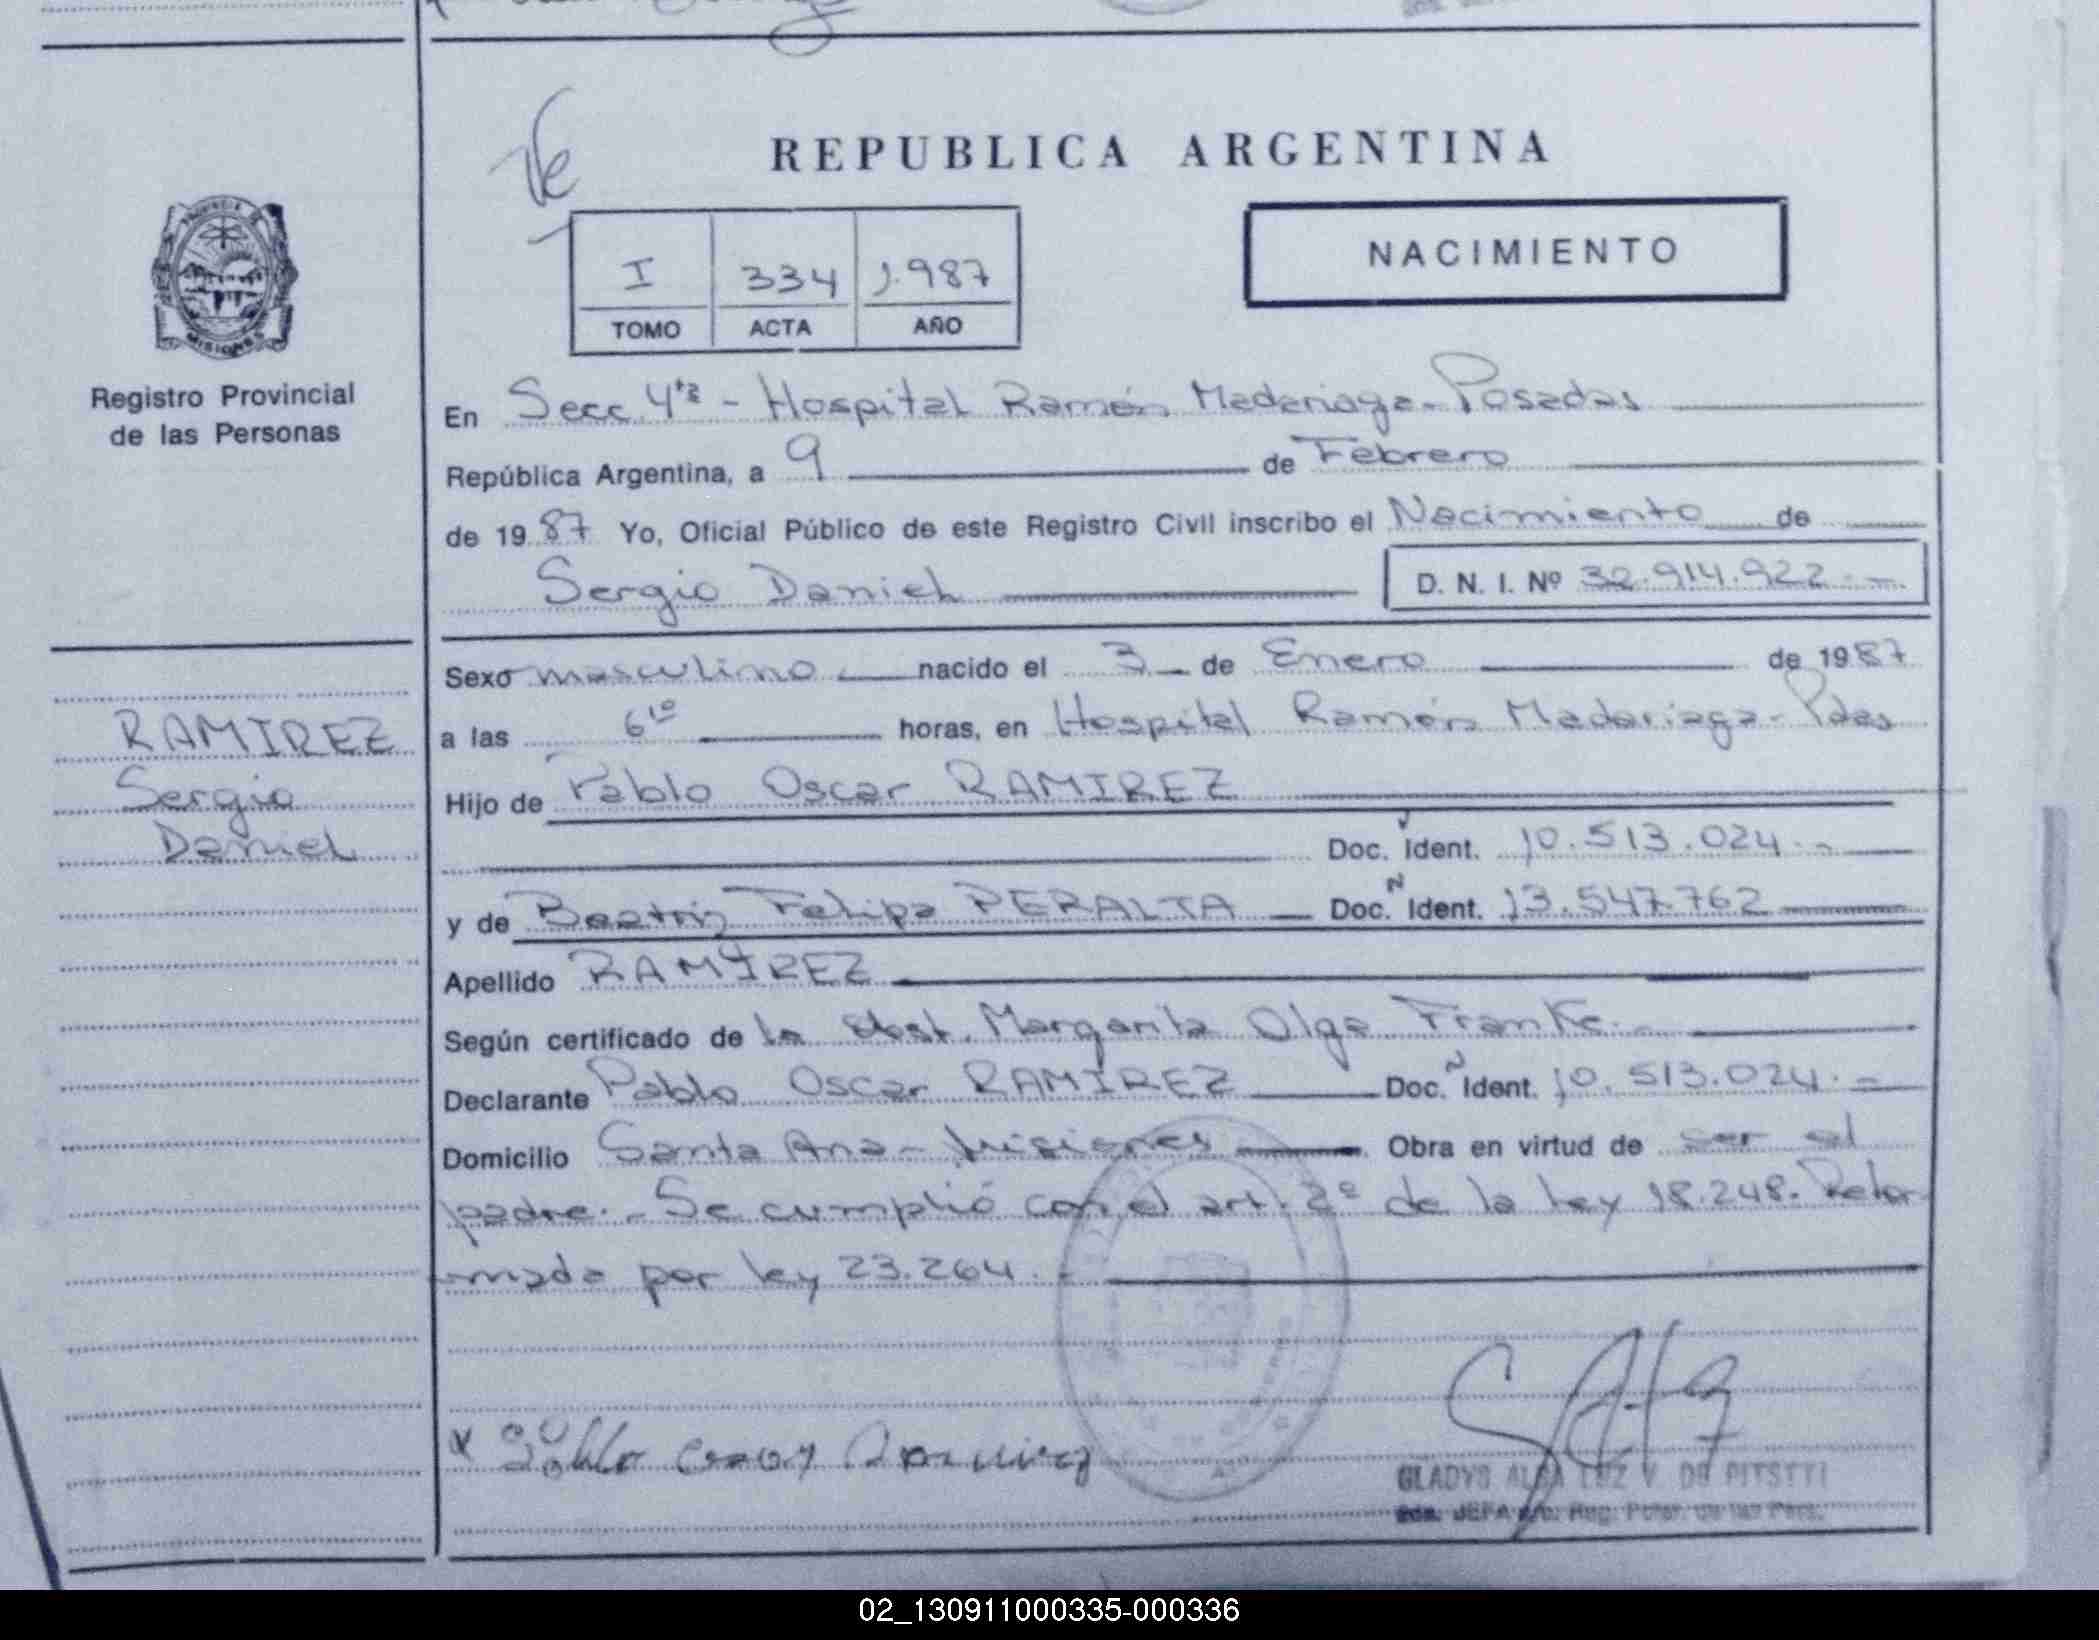 REPUBLICA ARGENTINA
NACIMIENTO
I 334 1.987
TOMO ACTA AÑO
PROVINCIA DE
MISIONES
Registro Provincial
de las Personas
En Secc 4ta - Hospital Ramón Madariaga - Posadas
República Argentina, a 9 de Febrero
de 1987 Yo, Oficial Público de este Registro Civil inscribo el Nacimiento de
Sergio Daniel D. N. I. Nº 32.914.922.-
Sexo masculino nacido el 3 de Enero de 1987
a las 6 10 horas, en Hospital Ramón Madariaga - Pdas
Hijo de Pablo Oscar RAMIREZ
Doc. Ident. 10.513.024.-
y de Beatriz Felipa PERALTA Doc. N Ident. 13.547.762
Apellido RAMIREZ
Según certificado de la Obst. Margarita Olga Franke.
Declarante Pablo Oscar RAMIREZ Doc. Ident. 10.513.024.=
Domicilio Santa Ana - Misiones Obra en virtud de ser el
padre.- Se cumplió con el art. 2º de la ley 18.248. Refor
mada por ley 23.264.-
RAMIREZ
Sergio
Daniel
x Pablo Oscar Ramirez
GLADYS ALBA LUZ V. DE
JEFA Reg. de las Pers.
02_130911000335-000336